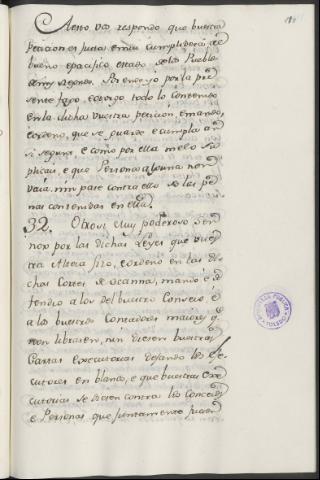 A esto vos respondo que buestra
peticion es justa e mui cumplidera al
bueno e pacifico estado de los Pueblos
de mis regnos. Por ende io por la pre
sente fago, e otorgo todo lo contenido
en la dicha vuestra peticion, e mando,
e ordeno, que se guarde e cumpla an
si segunt e como por ella me lo su
plicais, e que Persona alguna non
vaia, nin pase contra ello so las pe
nas contenidas en ella.
32. Otrosi Mui poderoso Sen
nor por las dichas Leyes que vues
tra Alteza fizo, e ordenó en las di
chas Cortes de Ocanna, mandó e de
fendio a los del buestro Consejo, é
a los buestros Contadores maiores q
non librasen, nin diesen buestras
Cartas executorias dejando los exe
cutores en blanco, e que buestras Exe
cutorias se diesen contra los Concejos
e Personas que juntamente fuesen